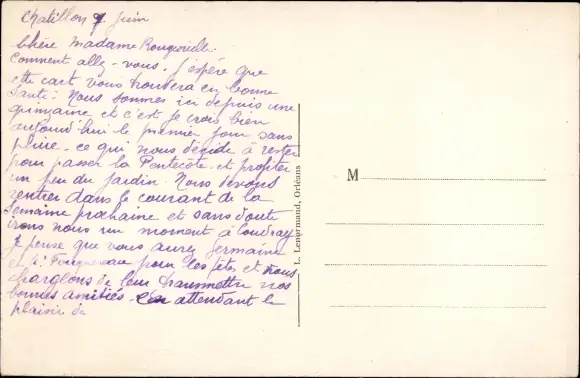 Chatillon 7 Juin
Chère Madame
Comment allez-vous. J'espère que
cette cart vous trouvera en bonne
Santé. Nous sommes ici depuis une
quinzaine et c'est je crois bien
aujourd'hui le premier jour sans
pluie. ce qui nous décide à rester
pour passer la Pentecôte et profiter
un peu du jardin. Nous devons
rentrer dans le courant de la
semaine prochaine et sans doute
irons nous un moment à Coudray
Je pense que vous aurez Germaine
et pour les fêtes et nous
chargeons de leur transmettre nos
bonnes amitiés. En attendant le
plaisir de
L. Lenormand, Orléans
M